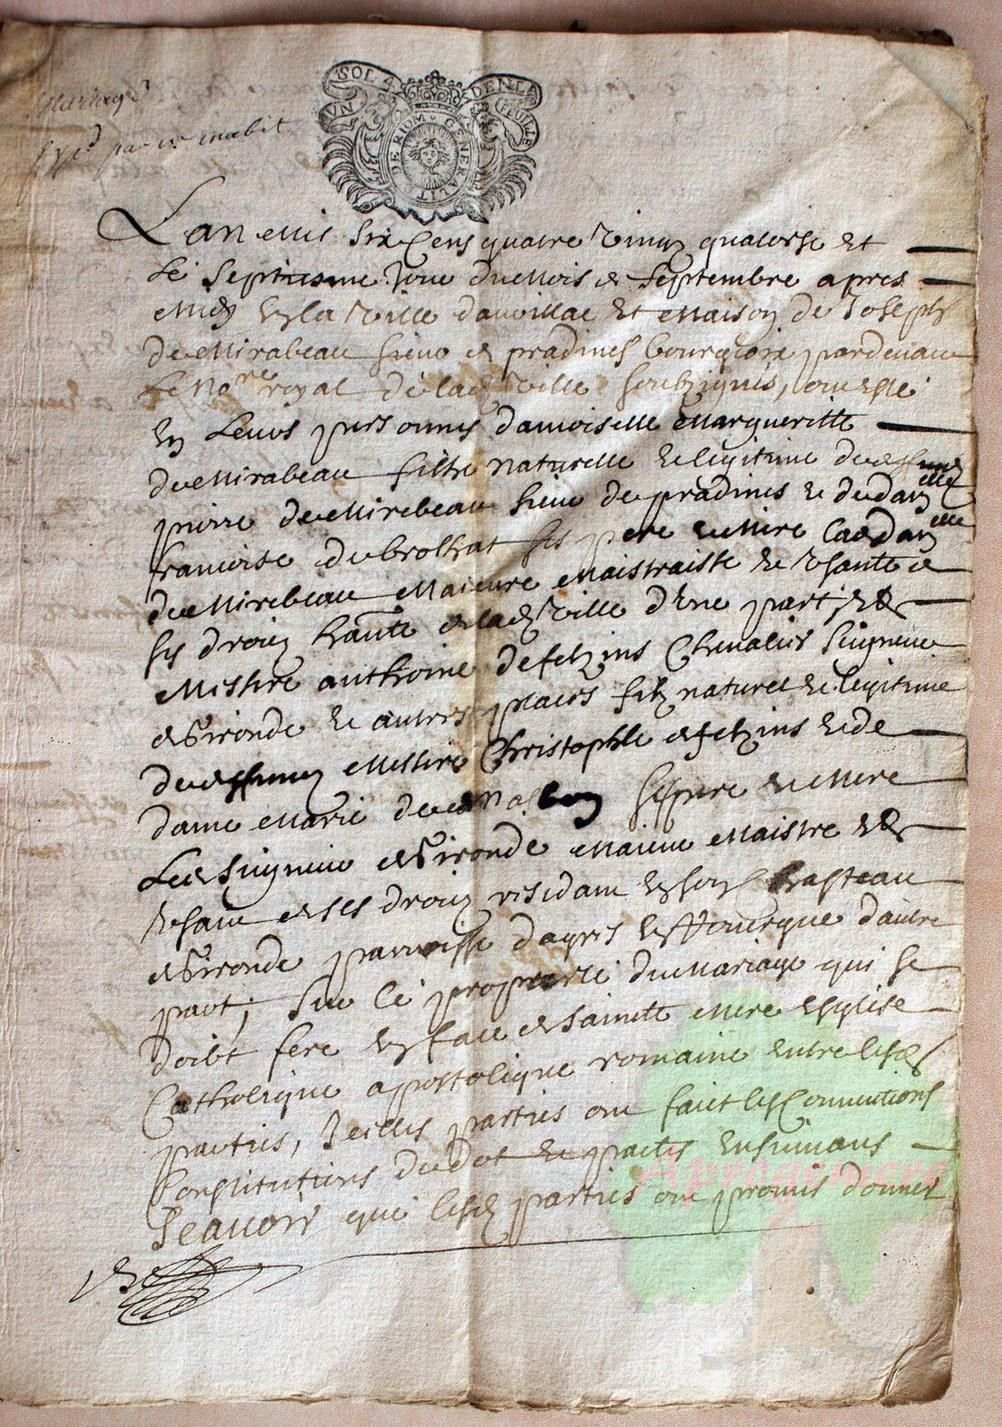 Mariage
exp.ed par ir mabit
UN SOL 4 DEN LA FEUILLE
GENERALIT DE RIOM
Lan mil six cens quatre vingt quatorse et
le septiesme jour du mois de septembre apres
midy en la ville dauvillac et maison de Joseph
de Mirabeau sieur de pradines bourgeois pardevant
le no.re royal de lad ville soubzigné, ont esté
en leurs personnes damoiselle Margueritte
de Mirabeau fille naturelle et legitime de deffunct
pierre de Mirebeau sieur de pradines et de dam.elle
francoise de brolhat ses pere et mere lad dam.elle
de Mirebeau majeure maistraisse et usante de
ses droicz habitante de lad ville d'une part, et
Messire anthoine de felzins chevalier seigneur
de Gironde et autres places filz naturel et legitime
de deffunct Messire Christophle de felzins et de
dame Marie de ses pere et mere
led seigneur de Gironde majeur maistre et
usant de ses droicz residant en son chasteau
de Gironde parroisse dagres en Rouergue d'autre
part; sur le propozé du mariage qui se
doibt fere en face de saincte mere esglise
Catholique apostolique romaine entre lesd
parties, Icelles parties ont faict les conventions
constitutions de dot et pactes ensuivans
Scavoir que lesd parties ont promis donner
Aprogemere